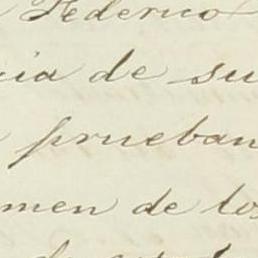 Federico
cia de su
prueban
men de los